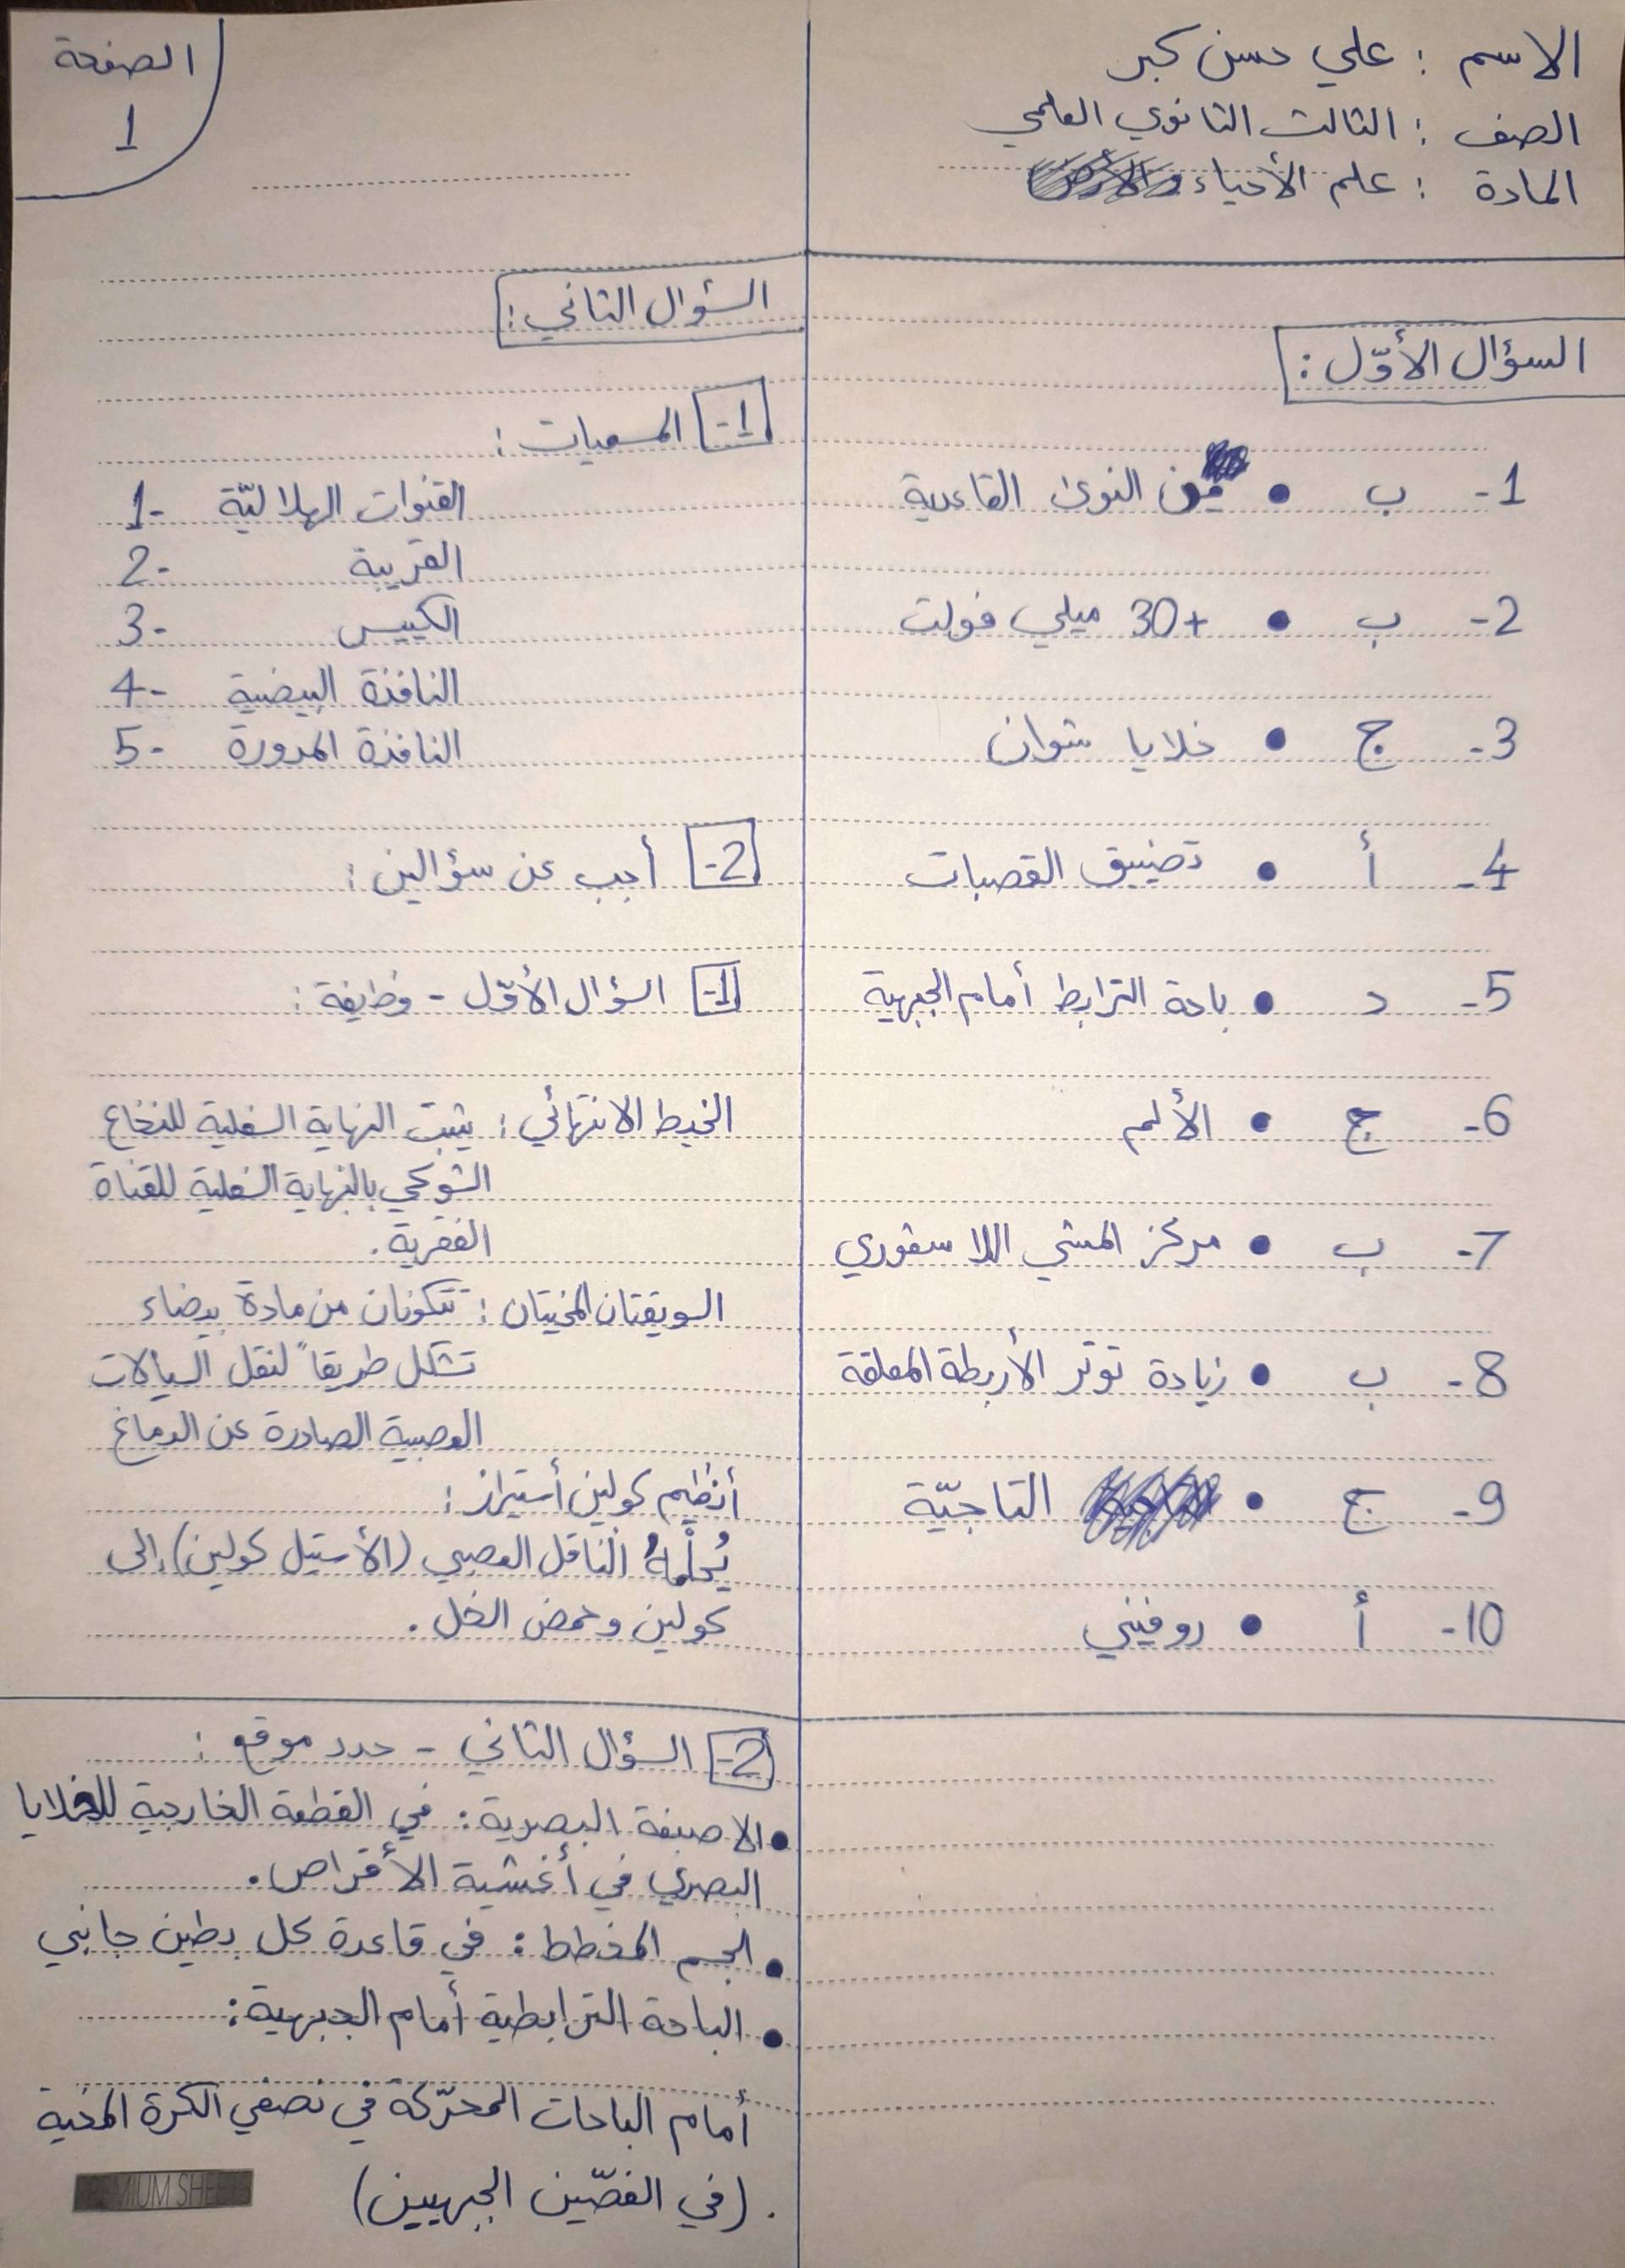 الاسم : علي حسن كبر
الصف : الثالث الثانوي العلمي
المادة : علم الأحياء
الصفحة
1
السؤال الأوّل :
1- ب • من النوى القاعدية
2- ب • +30 ميلي فولت
3- ج • خلايا شوان
4- أ • تضييق القصبات
5- د • باحة الترابط أمام الجبهية
6- ج • الألم
7- ب • مركز المشي اللا سفوري
8- ب • زيادة توتر الأربطة المعلقة
9- ج • التاجيّة
10- أ • روفيني
السؤال الثاني :
1- المسميات :
1- القنوات الهلاليّة
2- القريبة
3- الكييس
4- النافذة البيضية
5- النافذة المدورة
2- أجب عن سؤالين :
1- السؤال الأوّل - وظيفة :
الخيط الانتهائي : يثبت النهاية السفلية للنخاع
الشوكي بالنهاية السفلية للقناة
الفقرية .
السويقتان المخيتان : تتكونان من مادة بيضاء
تشكل طريقاً لنقل السيالات
العصبية الصادرة عن الدماغ
أنظيم كولين أستيراز :
يُحلْمهُ الناقل العصبي (الأستيل كولين) إلى
كولين وحمض الخل .
2- السؤال الثاني - حدد موقع :
• الاصبغة البصرية : في القطعة الخارجية للخلايا
البصري في أغشية الأقراص .
• الجسم المخطط : في قاعدة كل بطين جانبي
• الباحة الترابطية أمام الجبهية :
أمام الباحات المحرّكة في نصفي الكرة المخية
(في الفصّين الجبهيين) .